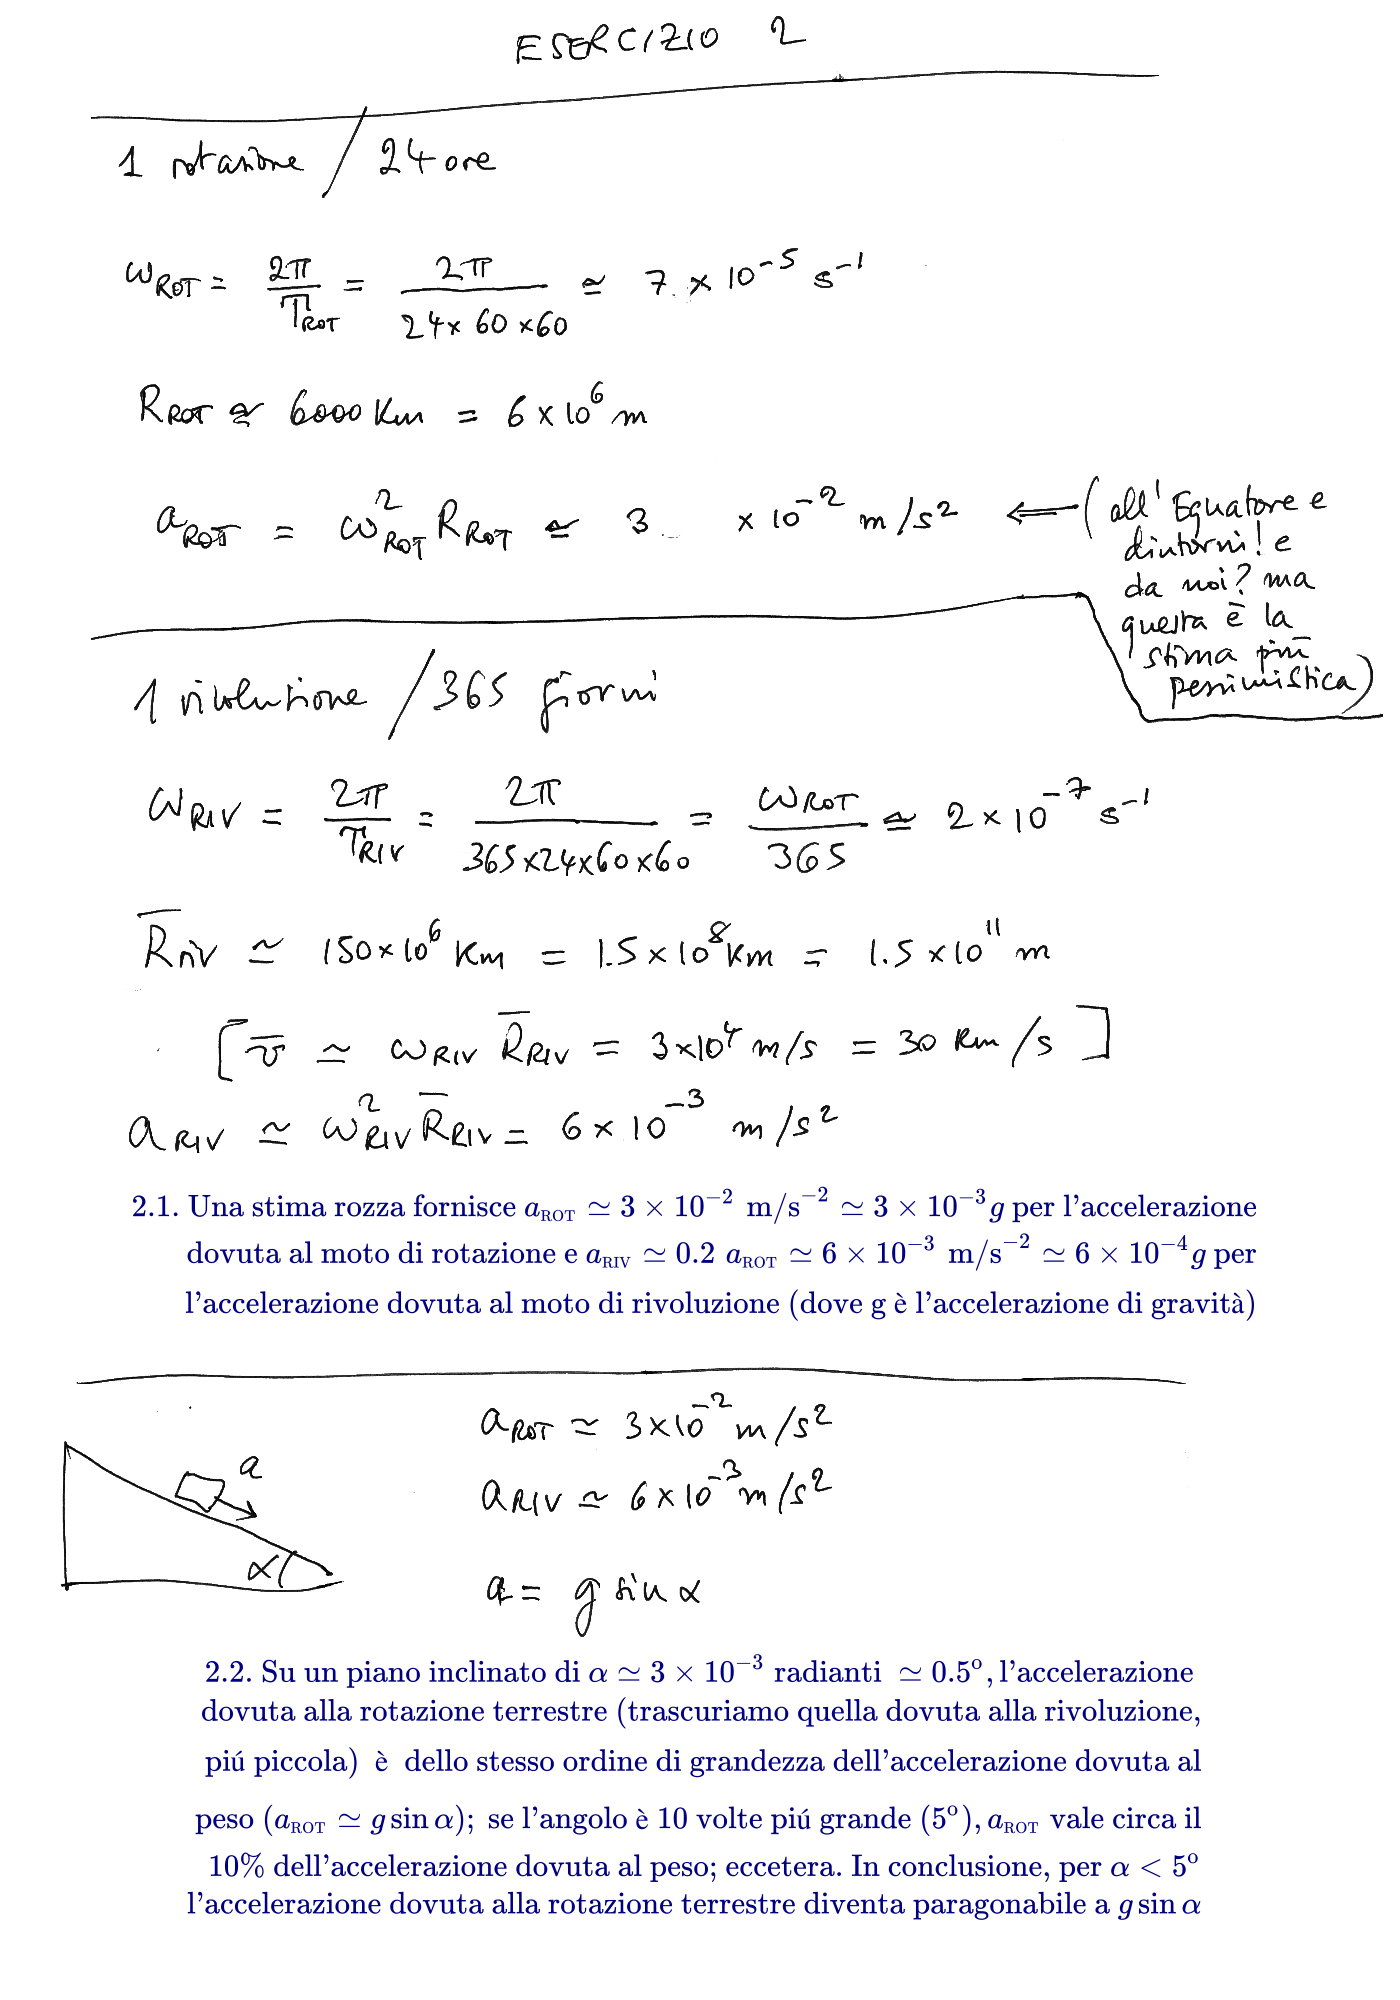 ESERCIZIO 2
1 rotazione / 24 ore
ω_ROT = 2π / T_ROT = 2π / 24 x 60 x 60 ≃ 7. x 10^-5 s^-1
R_ROT ≃ 6000 Km = 6 x 10^6 m
a_ROT = ω^2_ROT R_ROT ≃ 3 x 10^-2 m/s^2 ⟸ (all' Equatore e
dintorni! e
da noi? ma
questa è la
stima più
pessimistica)
1 rivoluzione / 365 giorni
ω_RIV = 2π / T_RIV = 2π / 365x24x60x60 = ω_ROT / 365 ≃ 2 x 10^-7 s^-1
R̅_RIV ≃ 150x10^6 Km = 1.5 x 10^8 Km = 1.5 x 10^11 m
[v̅ ≃ ω_RIV R̅_RIV = 3x10^4 m/s = 30 Km/s]
a_RIV ≃ ω^2_RIV R̅_RIV = 6 x 10^-3 m/s^2
2.1. Una stima rozza fornisce a_ROT ≃ 3 × 10^−2 m/s^−2 ≃ 3 × 10^−3 g per l'accelerazione
dovuta al moto di rotazione e a_RIV ≃ 0.2 a_ROT ≃ 6 × 10^−3 m/s^−2 ≃ 6 × 10^−4 g per
l'accelerazione dovuta al moto di rivoluzione (dove g è l'accelerazione di gravità)
a_ROT ≃ 3x10^-2 m/s^2
a
a_RIV ≃ 6x10^-3 m/s^2
α
a = g sin α
2.2. Su un piano inclinato di α ≃ 3 × 10^−3 radianti ≃ 0.5º, l'accelerazione
dovuta alla rotazione terrestre (trascuriamo quella dovuta alla rivoluzione,
piú piccola) è dello stesso ordine di grandezza dell'accelerazione dovuta al
peso (a_ROT ≃ g sin α); se l'angolo è 10 volte piú grande (5º), a_ROT vale circa il
10% dell'accelerazione dovuta al peso; eccetera. In conclusione, per α < 5º
l'accelerazione dovuta alla rotazione terrestre diventa paragonabile a g sin α